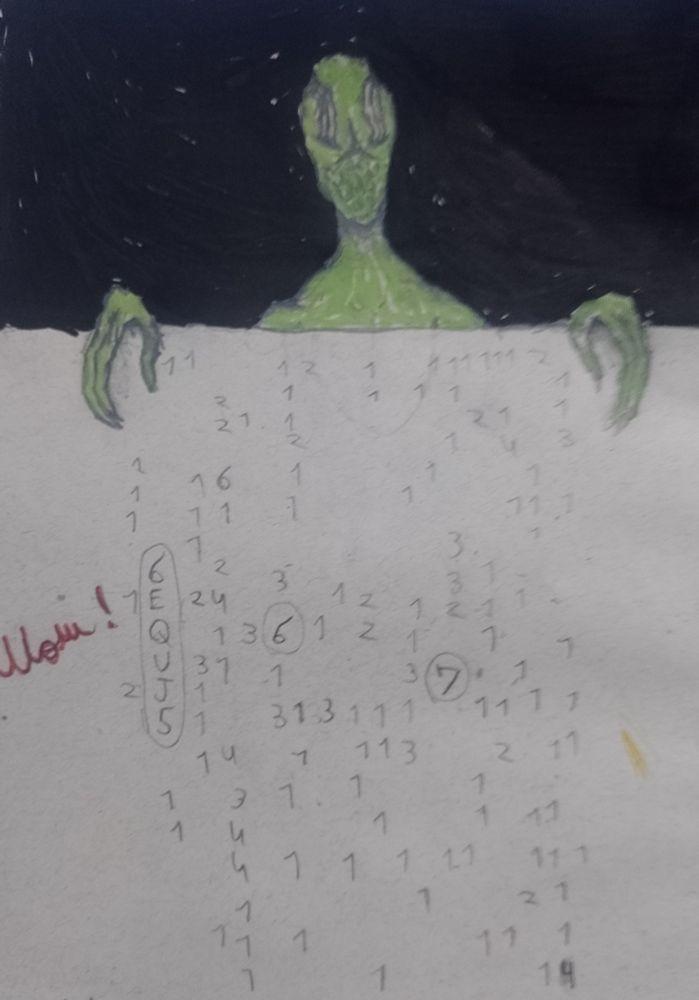 1 1 1 2 1 1 1 1 1 1 1 2
1 1
2 1 1 1 1 1
2 1 1 2 1
2 1 4 3
1 1 6 1 1 1
1 1
1 1 1 1 1 1 1
1 3 1
6 2 3 3 1
1 E 2 4 1 2 1 2 1 1
Q 1 3 6 1 2 1 1 1
U 3 1 1 3 7 1
2 J 1
5 1 3 1 3 1 1 1 1 1 1 1
1 4 1 1 1 3 2 1 1
1 3 1 1 1
1 4 1 1 1 1
4 1 1 1 1 1 1 1 1
1 1 2 1
1 1 1 1 1 1
1 1 1 4